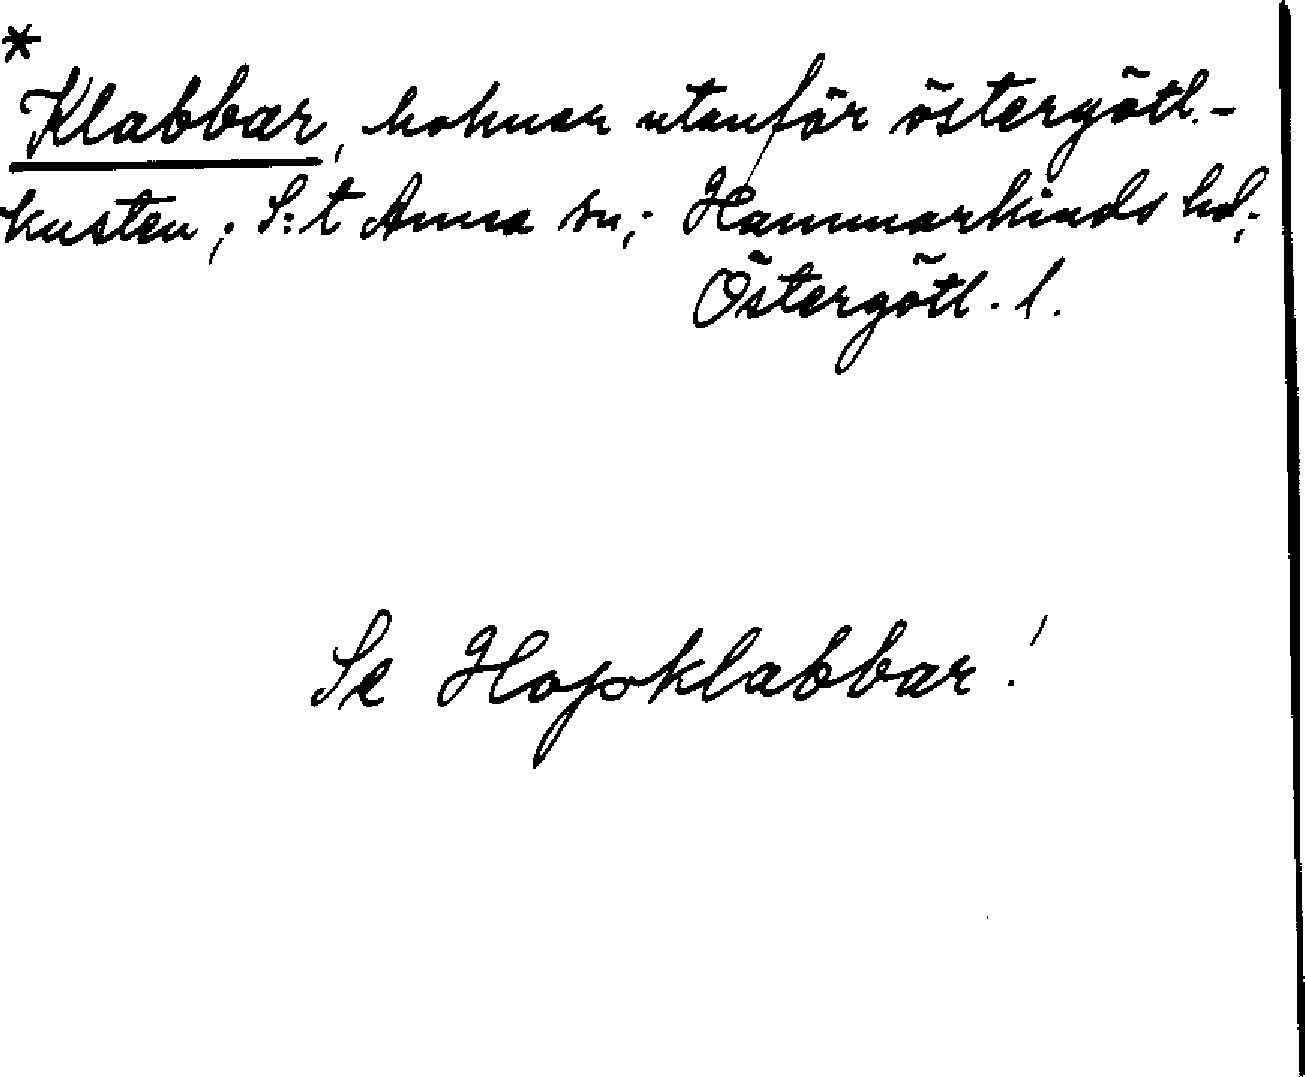 *
Klabbar, holmar utanför östergötl.-
kusten; S:t Anna sn; Hammarkinds hd;
Östergötl. l.
Se Hopklabbar!